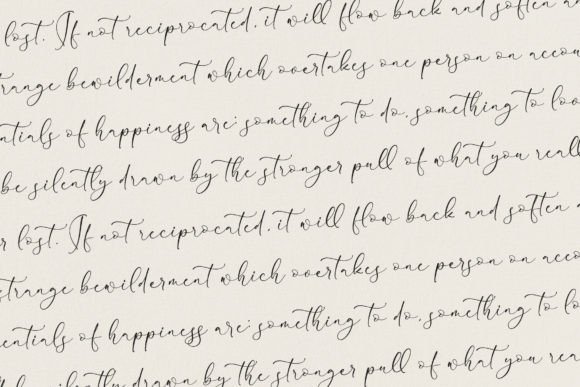 lost. If not reciprocated, it will flow back and soften an
trange bewilderment which overtakes one person on accou
entials of happiness are: something to do, something to lo
be silently drawn by the stronger pull of what you reall
r lost. If not reciprocated, it will flow back and soften a
strange bewilderment which overtakes one person on acco
entials of happiness are: something to do, something to lo
be silently drawn by the stronger pull of what you rea